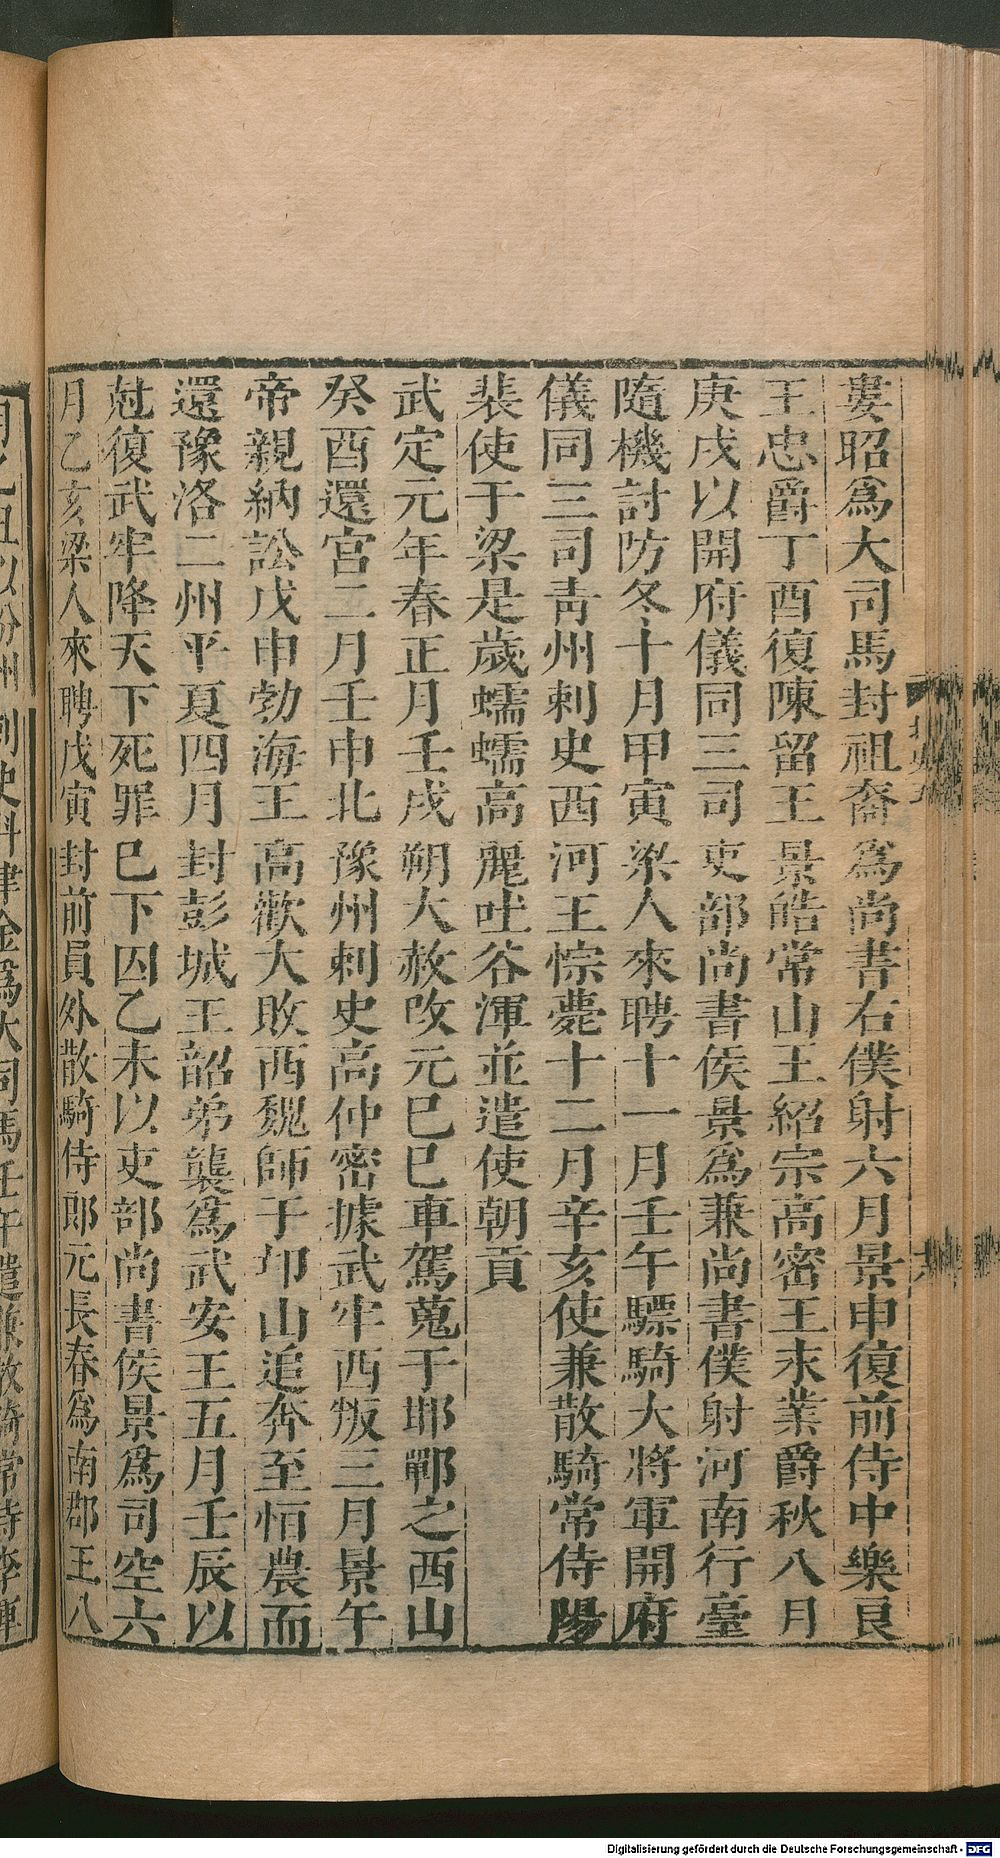 婁昭為大司馬封祖裔為尚書右僕射六月景申復前侍中樂良
王忠爵丁酉復陳留王景皓常山王紹宗高密王永業爵秋八月
庚戌以開府儀同三司吏部尚書侯景為兼尚書僕射河南行臺
隨機討防冬十月甲寅梁人來聘十一月壬午驃騎大將軍開府
儀同三司青州刺史西河王悰薨十二月辛亥使兼散騎常侍陽
裴使于梁是歲蠕蠕高麗吐谷渾並遣使朝貢
武定元年春正月壬戌朔大赦改元已巳車駕蒐于邯鄲之西山
癸酉還宮二月壬申北豫州刺史高仲密據武牢西叛三月景午
帝親納訟戊申勃海王高歡大敗西魏師于邙山追奔至恒農而
還豫洛二州平夏四月封彭城王韶弟襲為武安王五月壬辰以
尅復武牢降天下死罪已下囚乙未以吏部尚書侯景為司空六
月乙亥梁人來聘戊寅封前員外散騎侍郎元長春為南郡王八
史斛律金為大司馬壬午遣兼散騎常侍李渾
Digitalisierung gefördert durch die Deutsche Forschungsgemeinschaft - DFG